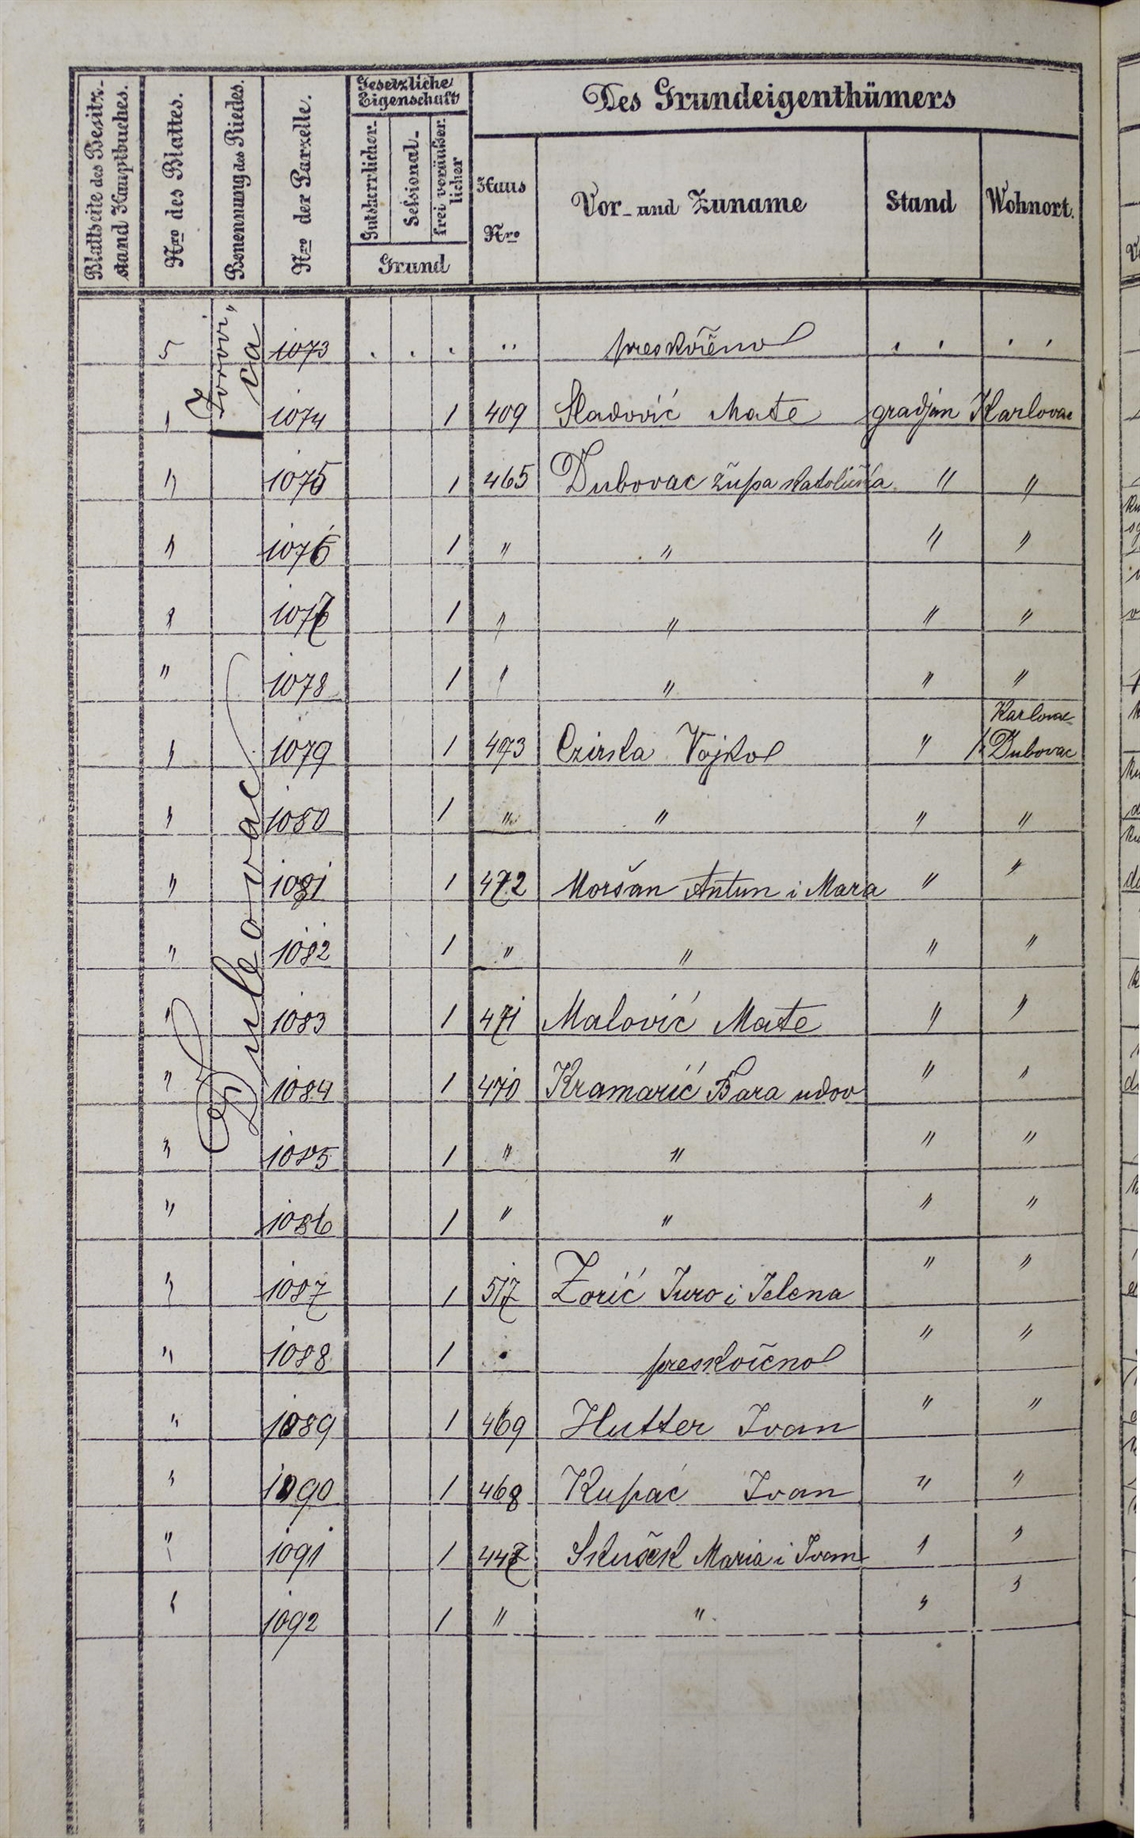 Blattseite des Besitz-
stand Hauptbuches.
Nro des Blattes.
Benennung des Riedes.
Nro der Parzelle.
Gesetzliche
Eigenschaft
Gutsherrlicher-
Sessional-
frei veräußer-
licher
Grund
Des Grundeigenthümers
Haus
Nro
Vor- und Zuname
Stand
Wohnort.
5 1073 . . . .. preskočeno . . . .
" 1074 1 409 Sladović Mate gradjan Karlovac
" 1075 1 465 Dubovac župa katolička " "
" 1076 1 " " " "
" 1077 1 " " " "
" 1078 1 " " " "
Karlovac
" 1079 1 473 Czirska Vojko " Dubovac
" 1080 1 " " " "
" 1081 1 472 Moršan Antun i Mara " "
" 1082 1 " " " "
" 1083 1 471 Malović Mate " "
" 1084 1 470 Kramarić Bara udov " "
" 1085 1 " " " "
" 1086 1 " " " "
" 1087 1 517 Zorić Juro i Jelena " "
" 1088 1 . preskočeno " "
" 1089 1 469 Hutter Ivan " "
" 1090 1 468 Kupać Ivan " "
" 1091 1 447 Skušek Maria i Ivan " "
" 1092 1 " " " "